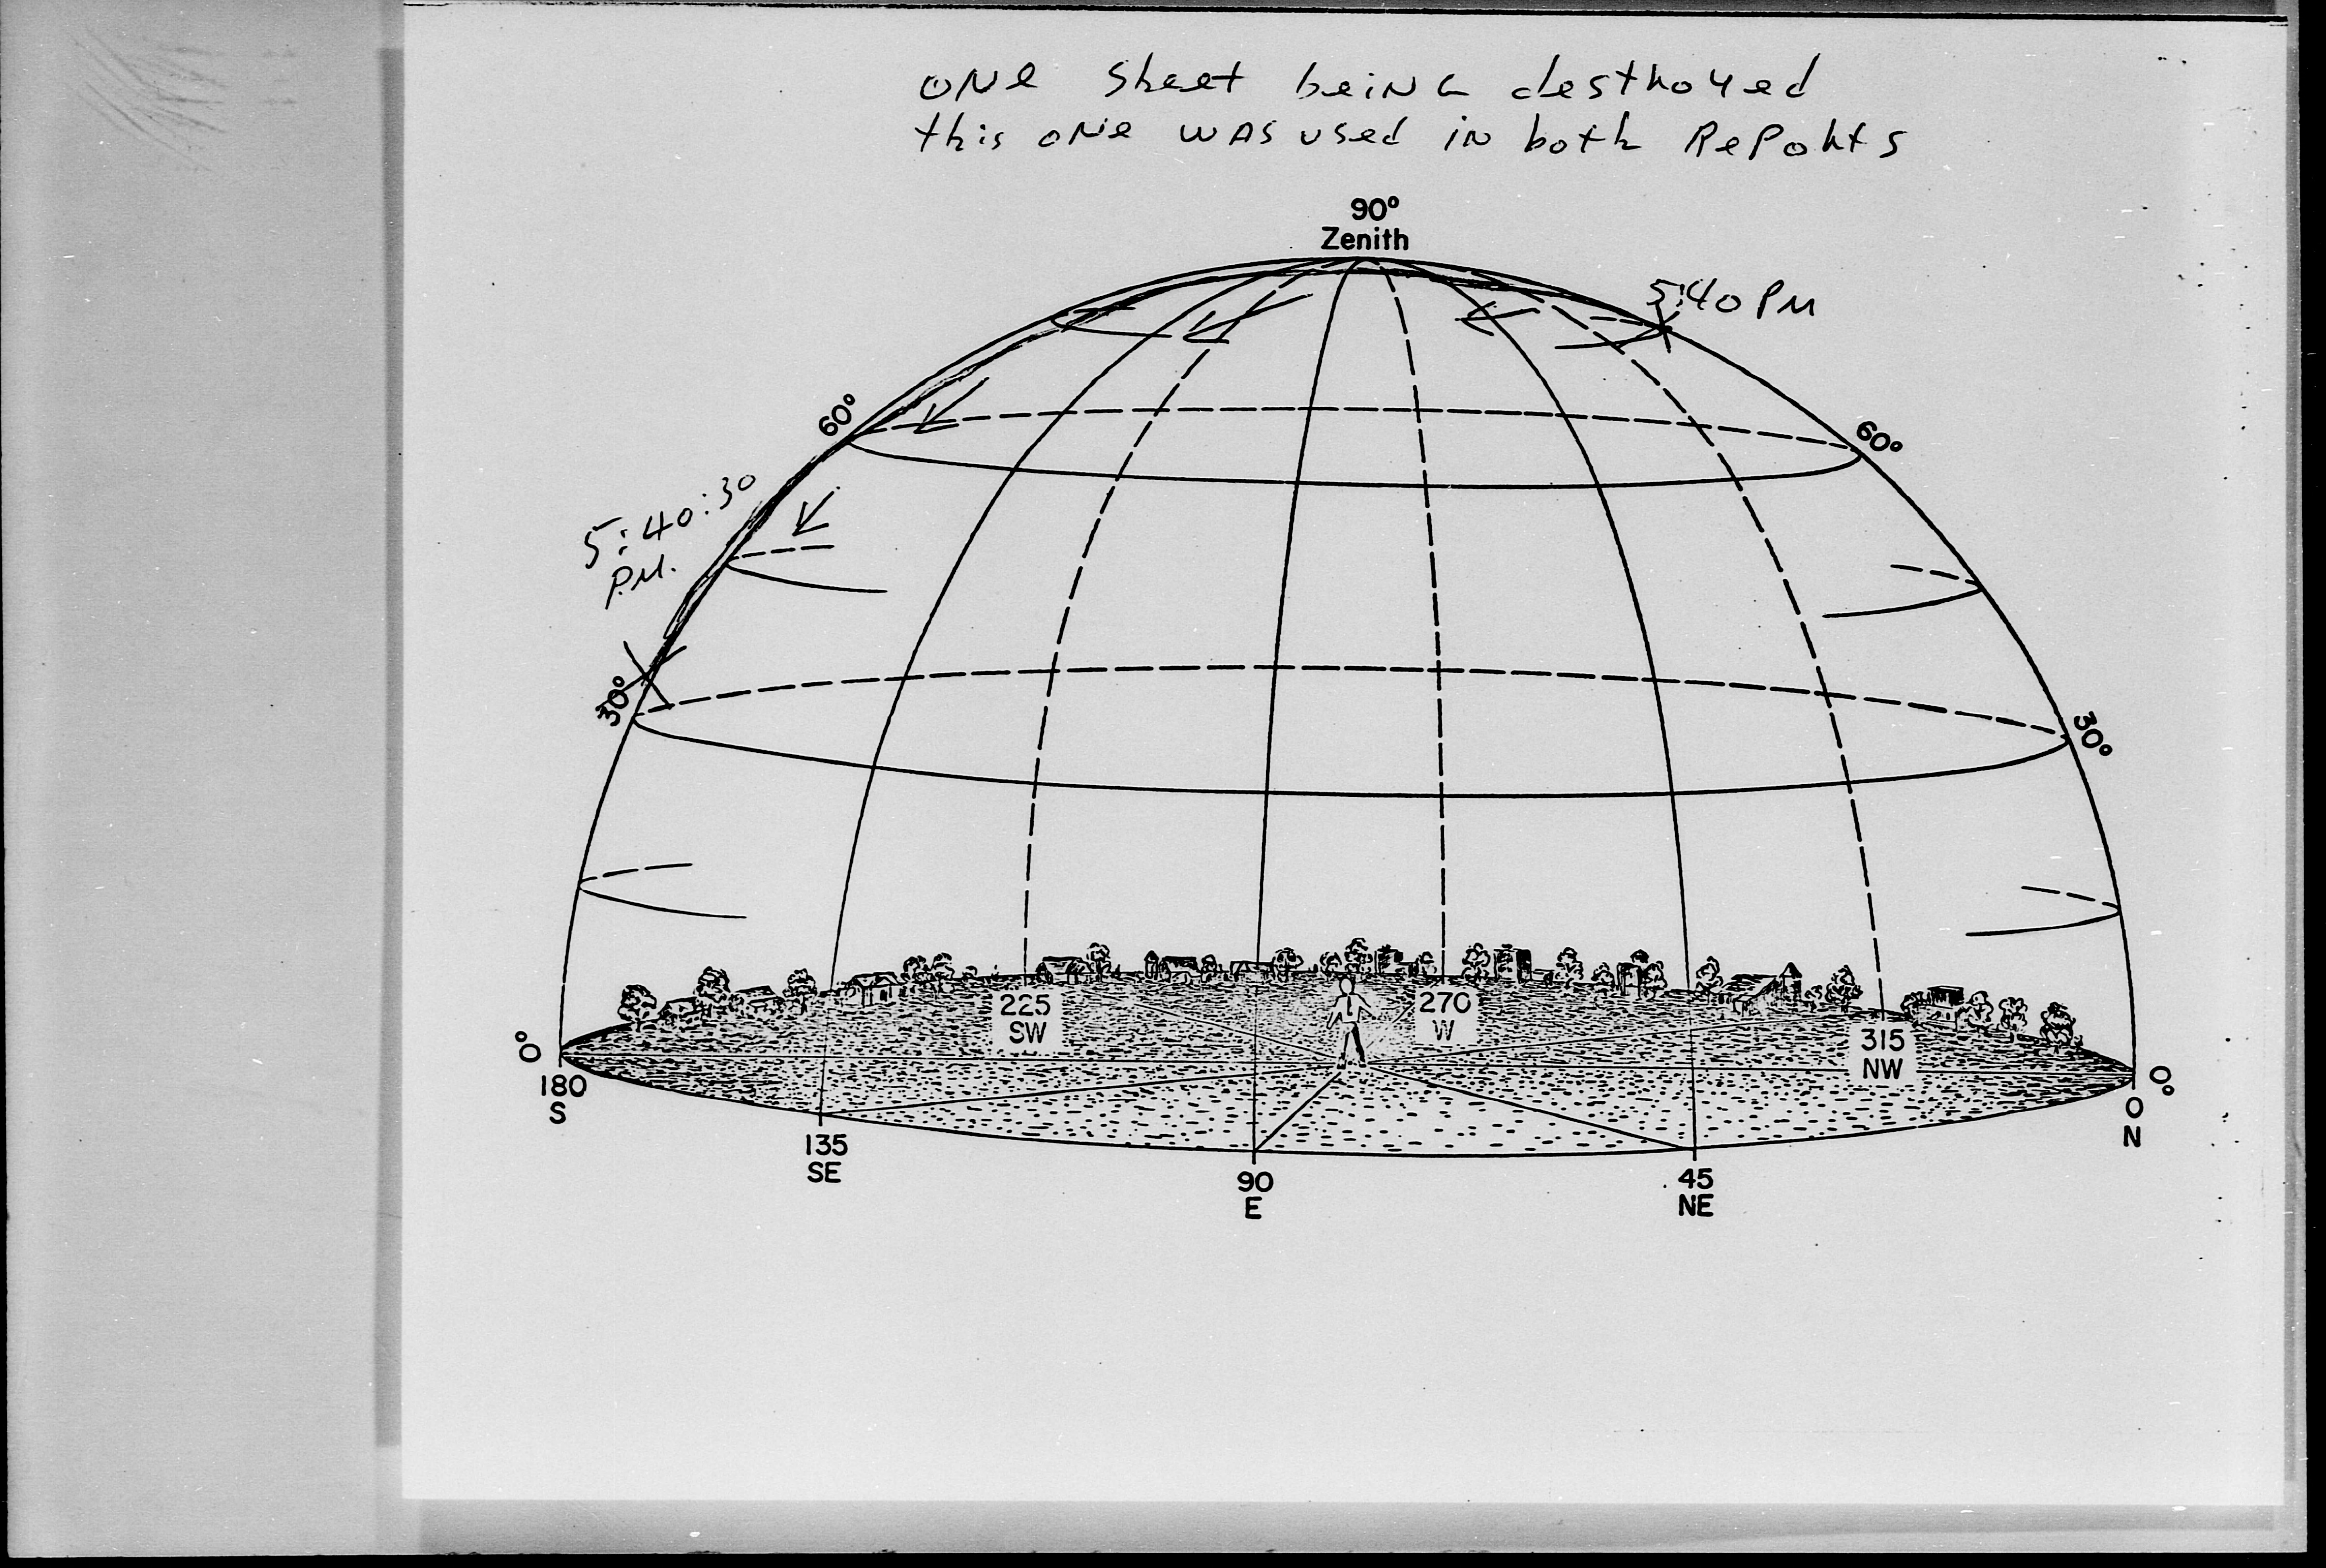 ONE sheet beING destroyed
this ONe WAS used iN both RePoRtS
90°
Zenith
5:40 PM
60°
60°
5:40:30
P.M.
30°
30°
225
SW
270
W
315
NW
0°
180
S
0°
0
N
135
SE
90
E
45
NE